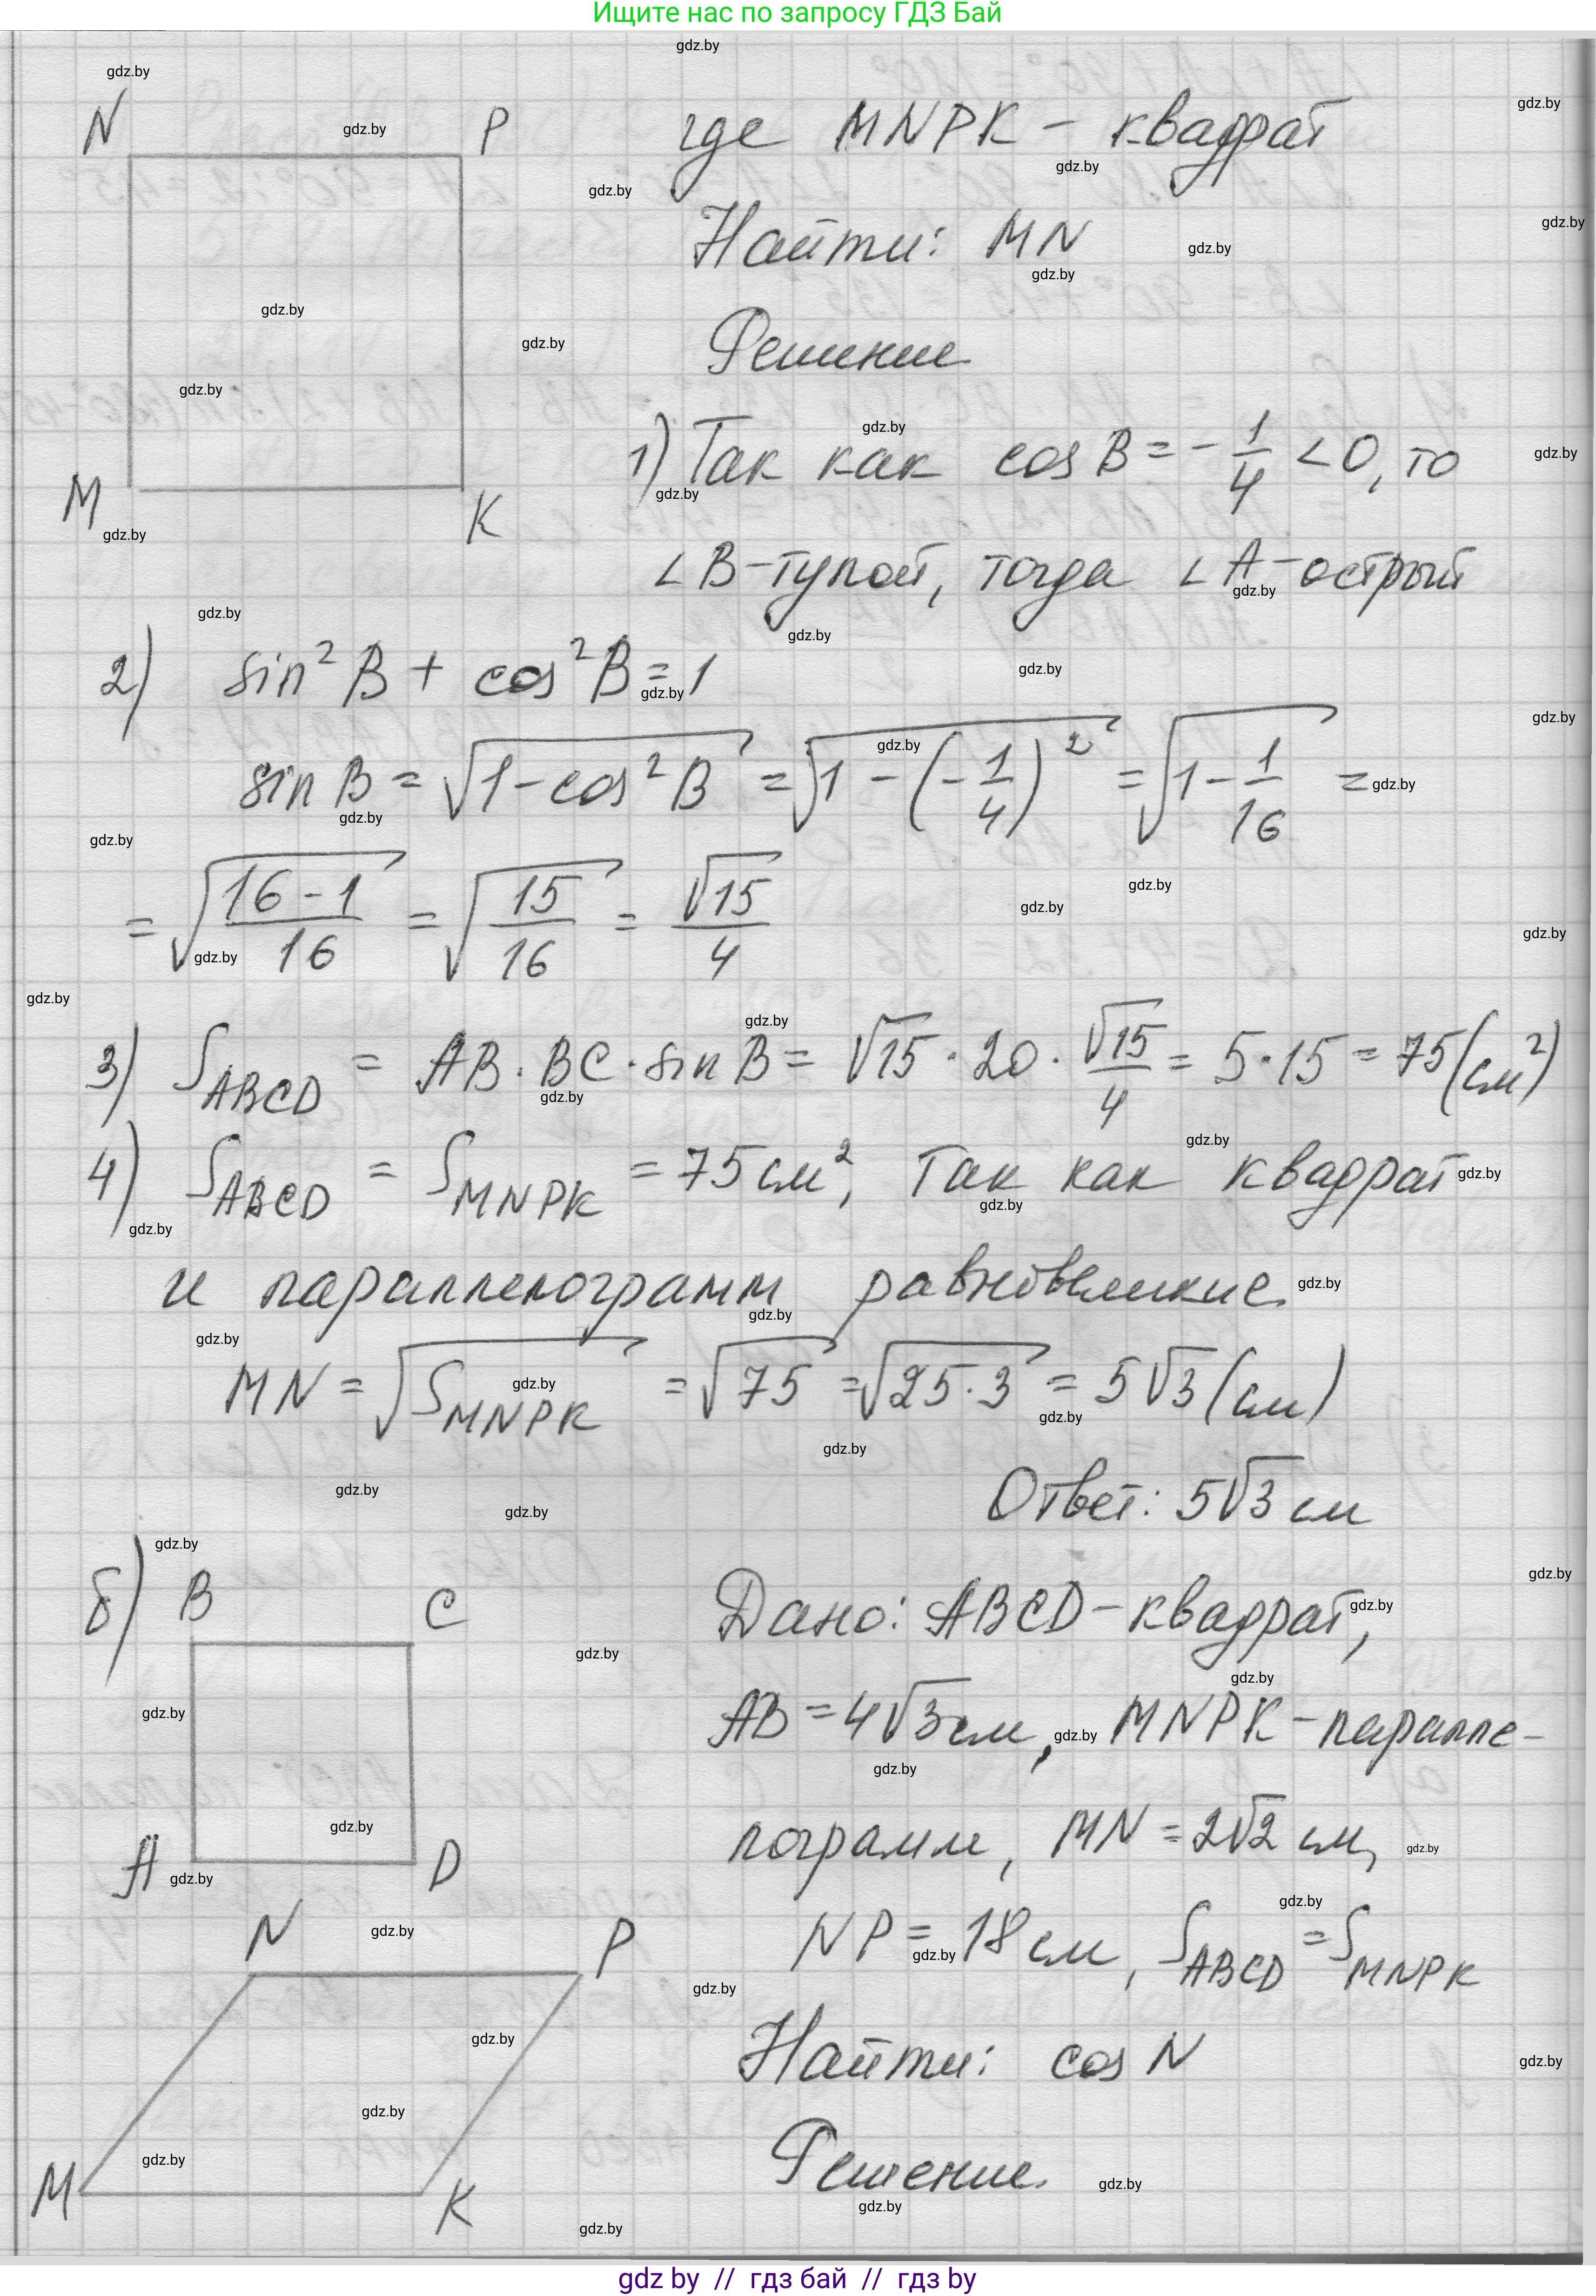 Ищите нас по запросу ГДЗ Бай
N P
M K
где MNPK – квадрат
Найти: MN
Решение
1) Так как cos B = -1/4 < 0, то
∠B-тупой, тогда ∠A-острый
2) sin² B + cos² B = 1
sin B = √(1 - cos² B) = √(1 - (-1/4)²) = √(1 - 1/16) =
= √((16-1)/16) = √(15/16) = √15/4
3) S_ABCD = AB · BC · sin B = √15 · 20 · √15/4 = 5·15 = 75 (см²)
4) S_ABCD = S_MNPK = 75 см², так как квадрат
и параллелограмм равновеликие.
MN = √S_MNPK = √75 = √25·3 = 5√3 (см)
Ответ: 5√3 см
б) B C
A D
N P
M K
Дано: ABCD-квадрат,
AB = 4√3 см, MNPK-паралле-
лограмм, MN = 2√2 см,
NP = 18 см, S_ABCD = S_MNPK
Найти: cos N
Решение.
gdz.by
gdz by // гдз бай // гдз by